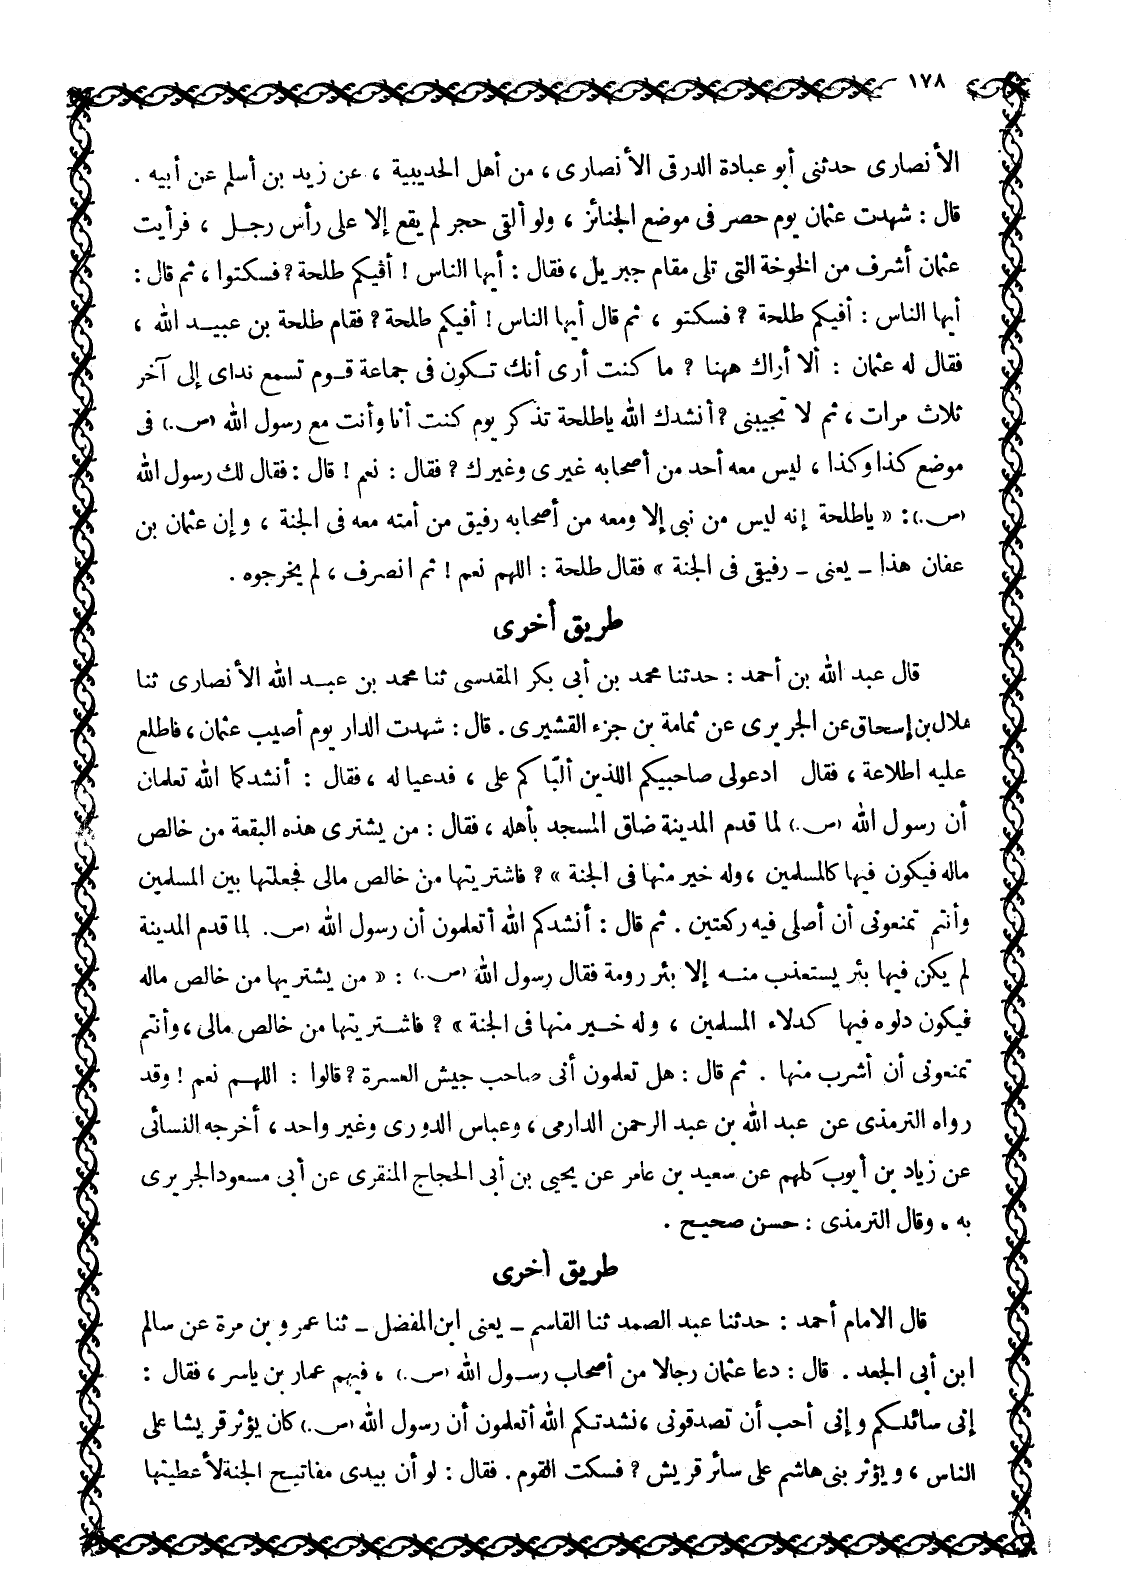 ١٧٨
الأنصارى حدثنى أبو عبادة الدرقى الأنصارى ، من أهل الحديبية ، عن زيد بن أسلم عن أبيه .
قال : شهدت عثمان يوم حصر فى موضع الجنائز ، ولو ألقى حجر لم يقع إلا على رأس رجل ، فرأيت
عثمان أشرف من الخوخة التى تلى مقام جبريل ، فقال : أيها الناس ! أفيكم طلحة ? فسكتوا ، ثم قال :
أيها الناس : أفيكم طلحة ? فسكتو ، ثم قال أيها الناس ! أفيكم طلحة ? فقام طلحة بن عبيد الله ،
فقال له عثمان : ألا أراك ههنا ? ما كنت أرى أنك تكون فى جماعة قوم تسمع نداى إلى آخر
ثلاث مرات ، ثم لا تجيبنى ? أنشدك الله ياطلحة تذكر يوم كنت أنا وأنت مع رسول الله (ص.) فى
موضع كذا وكذا ، ليس معه أحد من أصحابه غيرى وغيرك ? فقال : نعم ! قال : فقال لك رسول الله
(ص.) : « ياطلحة إنه ليس من نبى إلا ومعه من أصحابه رفيق من أمته معه فى الجنة ، وإن عثمان بن
عفان هذا ــ يعنى ــ رفيقى فى الجنة » فقال طلحة : اللهم نعم ! ثم انصرف ، لم يخرجوه .
طريق أخرى
قال عبد الله بن أحمد : حدثنا محمد بن أبى بكر المقدسى ثنا محمد بن عبد الله الأنصارى ثنا
هلال بن إسحاق عن الجريرى عن ثمامة بن جزء القشيرى . قال : شهدت الدار يوم أصيب عثمان ، فاطلع
عليه اطلاعة ، فقال ادعولى صاحبيكم اللذين ألبا كم على ، فدعيا له ، فقال : أنشدكما الله تعلمان
أن رسول الله (ص.) لما قدم المدينة ضاق المسجد بأهله ، فقال : من يشترى هذه البقعة من خالص
ماله فيكون فيها كالمسلمين ، وله خير منها فى الجنة » ? فاشتريتها من خالص مالى فجعلتها بين المسلمين
وأنتم تمنعونى أن أصلى فيه ركعتين . ثم قال : أنشدكم الله أتعلمون أن رسول الله (ص. لما قدم المدينة
لم يكن فيها بئر يستعذب منه إلا بئر رومة فقال رسول الله (ص.) : « من يشتريها من خالص ماله
فيكون دلوه فيها كدلاء المسلمين ، وله خير منها فى الجنة » ? فاشتريتها من خالص مالى ، وأنتم
تمنعونى أن أشرب منها . ثم قال : هل تعلمون أنى صاحب جيش العسرة ? قالوا : اللهم نعم ! وقد
رواه الترمذى عن عبد الله بن عبد الرحمن الدارمى ، وعباس الدورى وغير واحد ، أخرجه النسائى
عن زياد بن أيوب كلهم عن سعيد بن عامر عن يحيى بن أبى الحجاج المنقرى عن أبى مسعود الجريرى
به . وقال الترمذى : حسن صحيح .
طريق أخرى
قال الامام أحمد : حدثنا عبد الصمد ثنا القاسم ــ يعنى ابن المفضل ــ ثنا عمرو بن مرة عن سالم
ابن أبى الجعد . قال : دعا عثمان رجالا من أصحاب رسول الله (ص.) ، فيهم عمار بن ياسر ، فقال :
إنى سائلكم وإنى أحب أن تصدقونى ، نشدتكم الله أتعلمون أن رسول الله (ص.) كان يؤثر قريشا على
الناس ، ويؤثر بنى هاشم على سائر قريش ? فسكت القوم . فقال : لو أن بيدى مفاتيح الجنة لأعطيتها